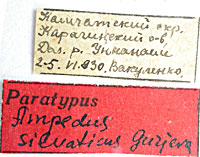 Камчатский окр.
Карагинский о-в,
Дол. р. Унюнваям
2-5.VI.930. Вакуленко
Paratypus
Ampedus
silvaticus Gurjeva